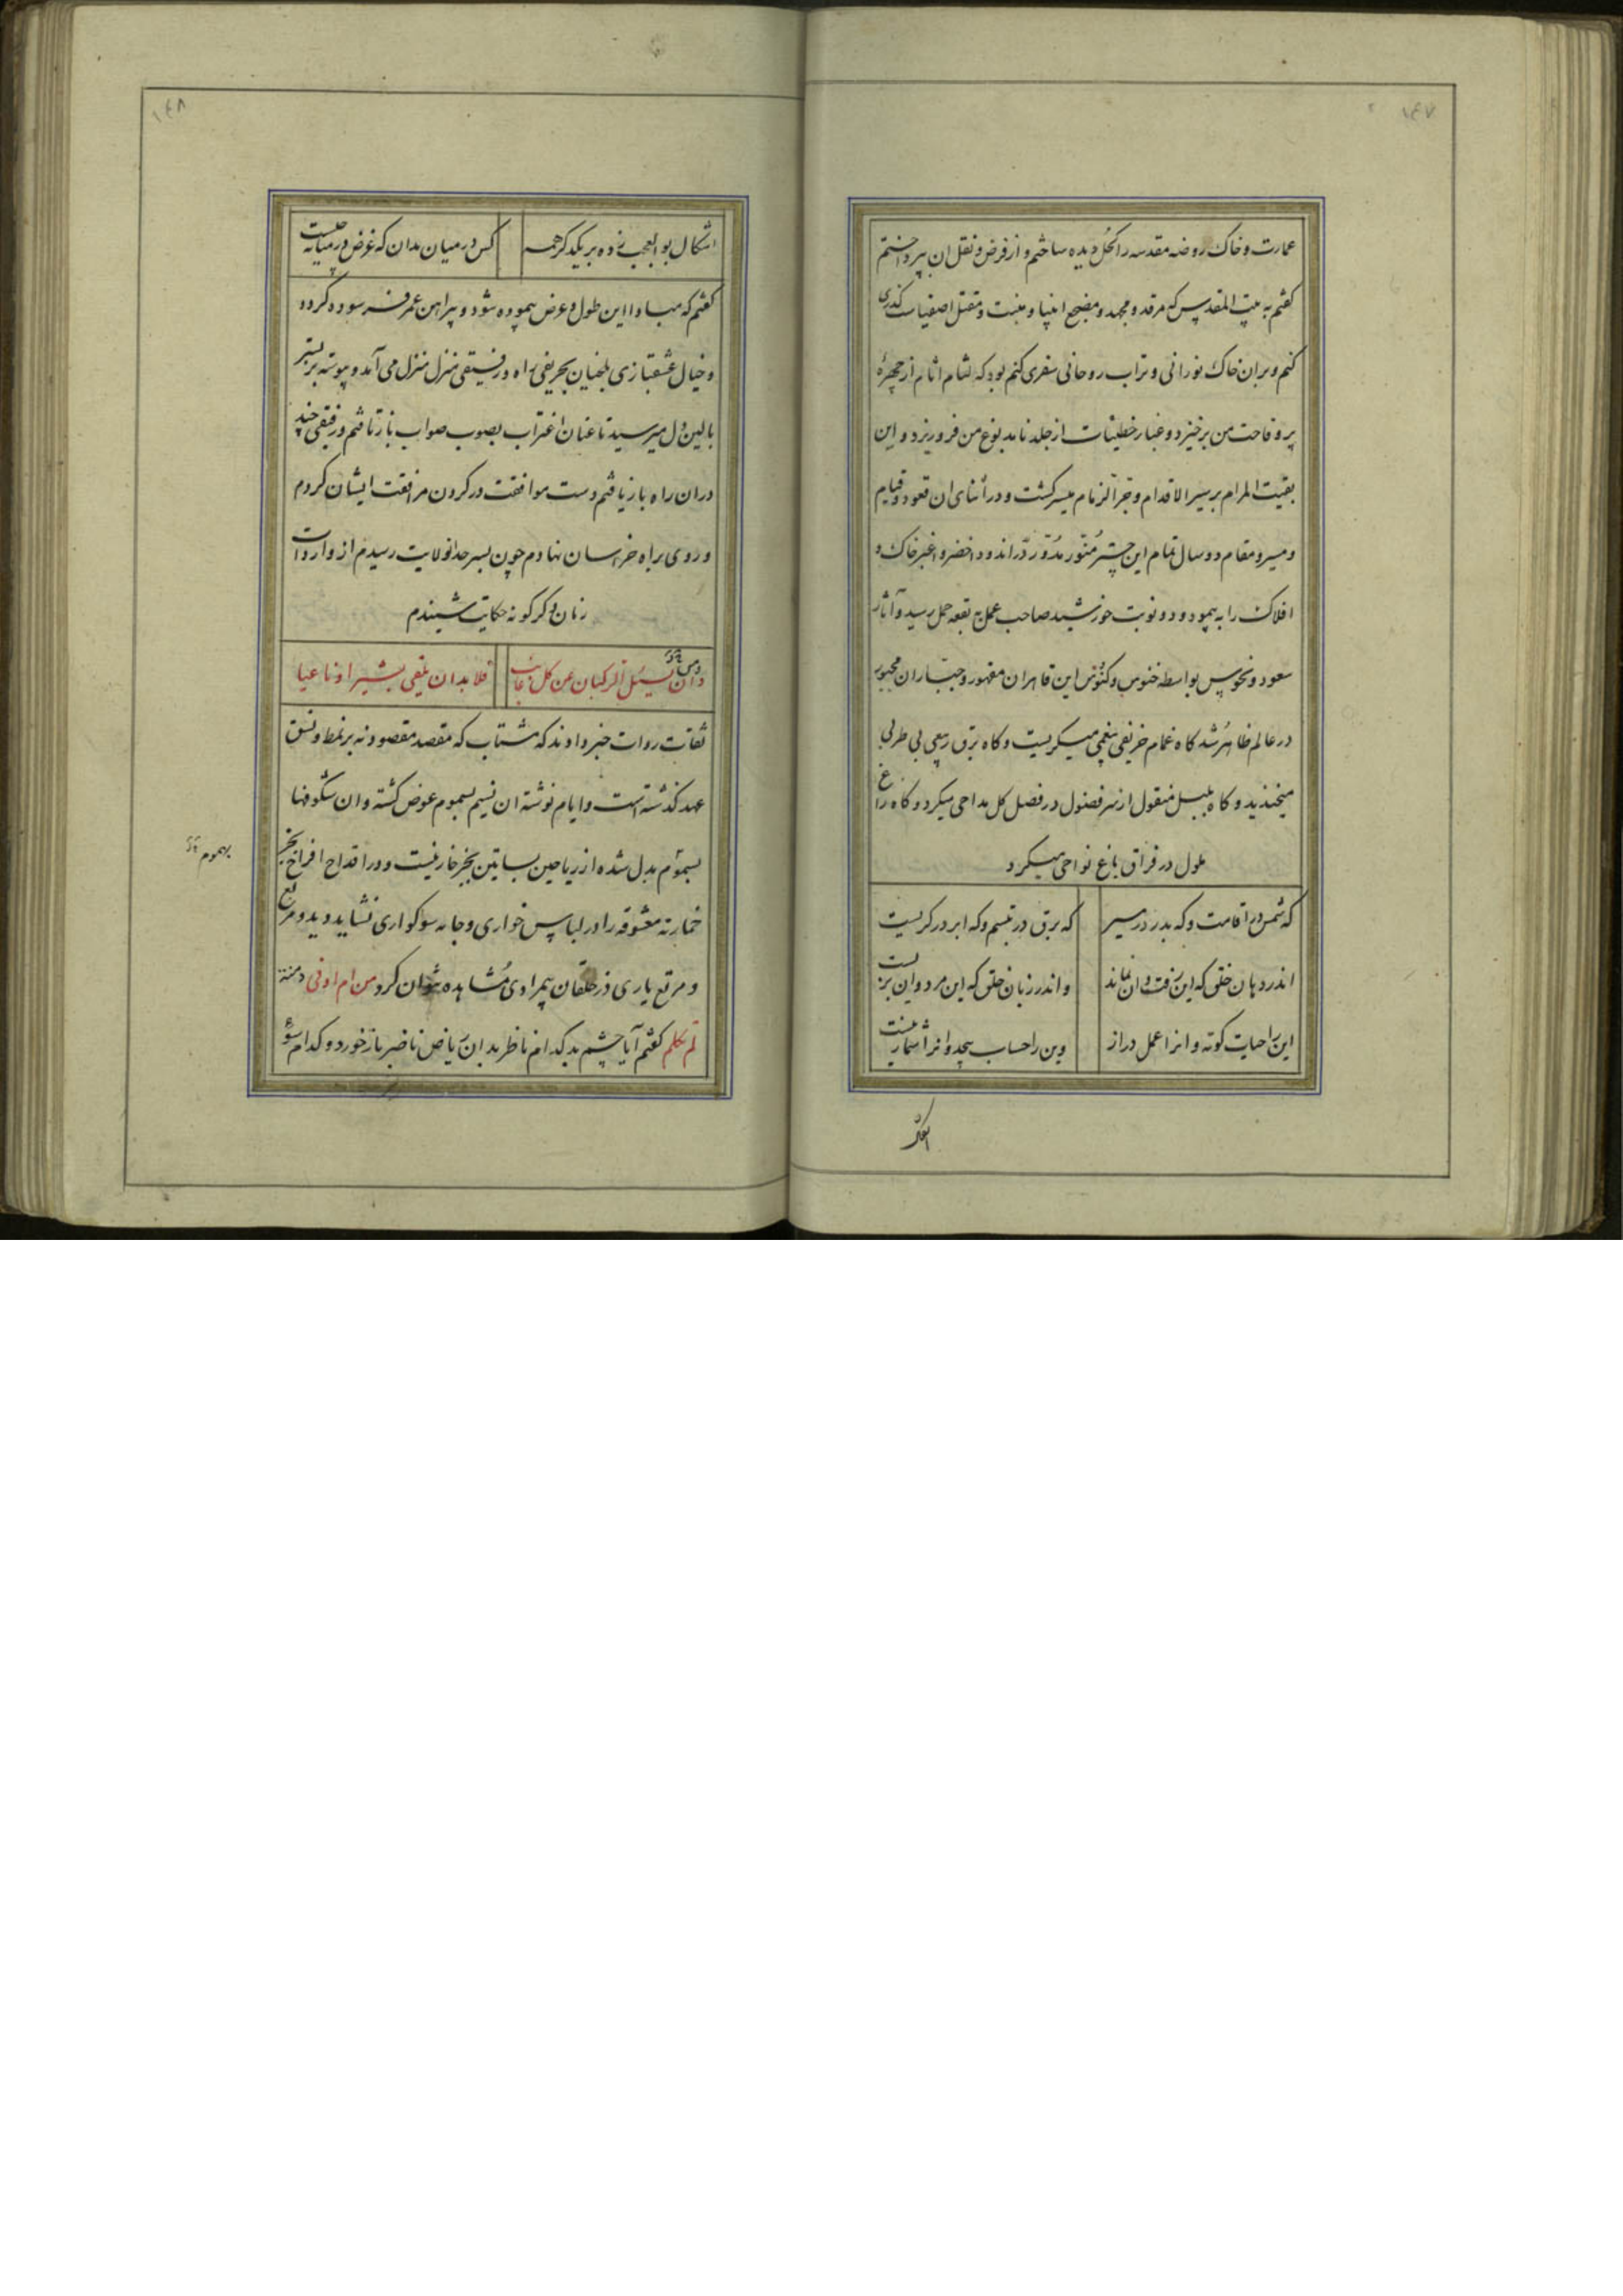 ۱۴۷
عمارت و خاک روضه مقدسه را کحل دیده ساختم و از فرض و نفل ان بپرداختم
کفتم به بیت المقدس که مرقد و مهد و مضجع انبیا و منبت و مقتل اصفیاست کذری
کنم و بران خاک نورانی و تراب روحانی سفری کنم بود که لثام اثام از چهرهٔ
پر وقاحت من برخیزد و غبار خطیئات از جلد نامدبوغ من فرو ریزد و این
بقیت المرام بسیر الاقدام و جر الزمام میسر کشت و در اثنای ان قعود و قیام
و مسیر و مقام دو سال تمام این چتر منور مدور در اندود اخضر و اغبر خاک و
افلاک را بپیمود و دو نوبت خورشید صاحب عمل به بقعه حمل رسید و آثار
سعود و نحوس بواسطه خنوس و کنوس این قاهران مقهور و جباران مجبور
در عالم ظاهر شد کاه غمام خریفی بیغمی میکریست و کاه برق ربیعی بی طربی
میخندید و کاه بلبل منقول از سر فضول در فصل کل مداحی میکرد و کاه زاغ
ملول در فراق باغ نواحی میکرد
که شمس در اقامت و که بدر در مسیر
که برق در تبسم و که ابر در کریست
اندر دهان خلق که این رفت و ان بماند
و اندر زبان خلق که این مرد و ان بزیست
این را حیات کوته و انرا عمل دراز
وین را حساب بیحد و انرا شمار نیست
اشکال
۱۴۸
اشکال بوالعجب زده بر یکدکر همه
کس در میان مدان که غرض در میانه چیست
کفتم که مبادا این طول و عرض پیموده شود و پیراهن عمر فرسوده کردد
و خیال عشقبازی بلخیان بحریفی راه و رفیقی منزل منزل می آمد و پیوسته بر بستر
بالین دل میرسید تا عنان اغتراب بصوب صواب باز تافتم و رفیقی چند
دران راه باز یافتم دست موافقت در کردن مرافقت ایشان کردم
و روی براه خراسان نهادم چون بسرحد انولایت رسیدم از واردات
زمان دکرکونه حکایت شنیدم
وان یسئل الرکبان عن کل غائب
فلا بد ان یلقی بشیرا او ناعیا
ثقات روات خبر دادند که مشتاب که مقصد مقصود نه بر نمط و نسق
عهد کذشته است و ایام نوشته ان نسیم بسموم عوض کشته و ان شکوفها
بسموم بدل شده از ریاحین بساتین بجز خار نیست و در اقداح افراح بجز
بهموم
خمار نه معشوقه را در لباس خواری و جامه سوکواری نشاید دید و مربع
و مرتع یاری در خلقان بیمرادی مشاهده نتوان کرد من ام اوفی دمنة
لم تکلم کفتم آیا چشم بد کدام ناظر بدان ریاض ناضر باز خورد و کدام سؤ